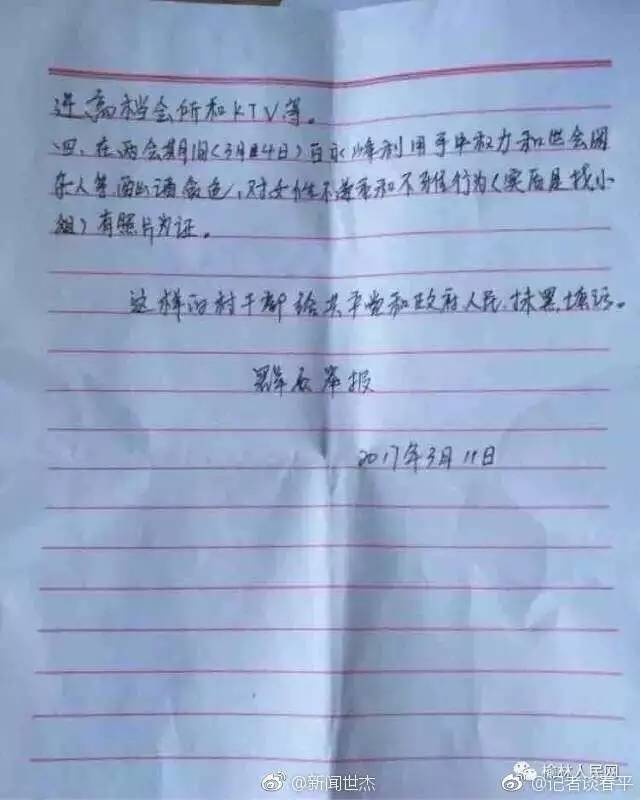 进高档会所和KTV等。
四、在两会期间(3月4日)白永峰利用手中权力和些会闲
杂人等酒酗诱色,对女性不尊重和不雅行为(实后是找小
姐)有照片为证。
这样的村干部给共产党和政府人民,抹黑,填污。
群众举报
2017年3月11日
榆林人民网
@新闻世杰
@记者谈春平